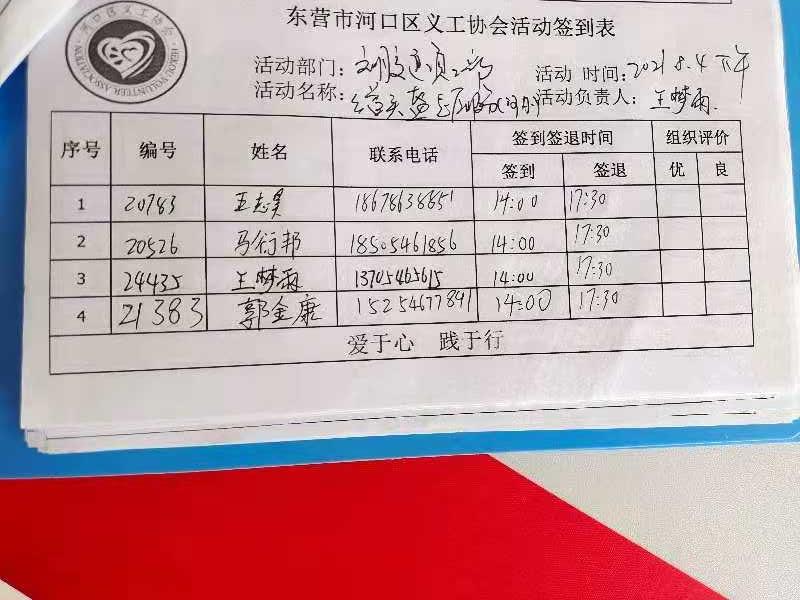 东营市河口区义工协会活动签到表
河口区义工协会
HEKOU VOLUNTEER ASSOCIATION
活动部门：文明交通项目部 活动 时间：2021.8.4 下午
活动名称： 活动负责人：王梦雨
序号 编号 姓名 联系电话 签到签退时间 组织评价
签到 签退 优 良
1 20783 王志昊 18678638651 14:00 17:30
2 20526 马衍邦 18505461856 14:00 17:30
3 24435 王梦雨 13705465615 14:00 17:30
4 21383 郭金康 15254677891 14:00 17:30
爱于心 践于行